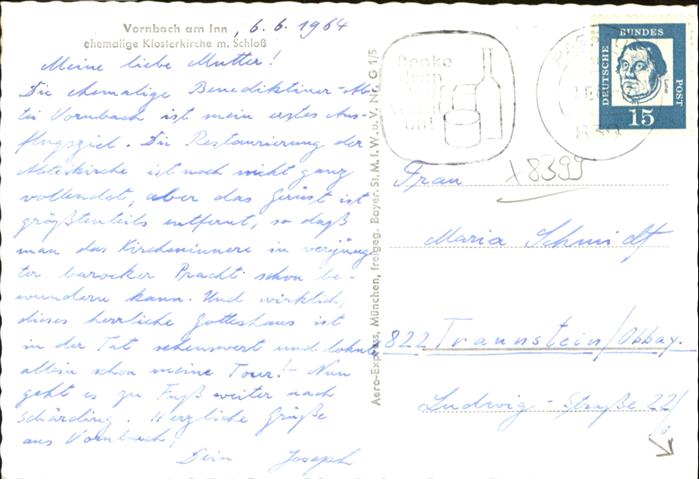 Vornbach am Inn, 6.6.1964
ehemalige Klosterkirche m. Schloß
Meine liebe Mutter!
Die ehemalige Benediktiner-Ab-
tei Vornbach ist mein erstes Aus-
flugsziel. Die Restaurierung der
Abteikirche ist noch nicht ganz
vollendet, aber das Gerüst ist
größtenteils entfernt, so daß
man das Kircheninnere in verjüng-
ter barocker Pracht schon be-
wundern kann. Und wirklich,
dieses herrliche Gotteshaus ist
in der Tat sehenswert und lohnt
allein schon meine Tour! - Nun
geht es zu Fuß weiter nach
Schärding. Herzliche Grüße
aus Vornbach!
Dein Joseph
Aero-Express, München, freigeg. Bayer. St. M. f. W. u. V. Nr. G 1/5
Denke
dran
DEUTSCHE BUNDES POST
15
+8399
Frau
Maria Schmidt
822 Traunstein/Obbay.
Ludwig-Straße 22/